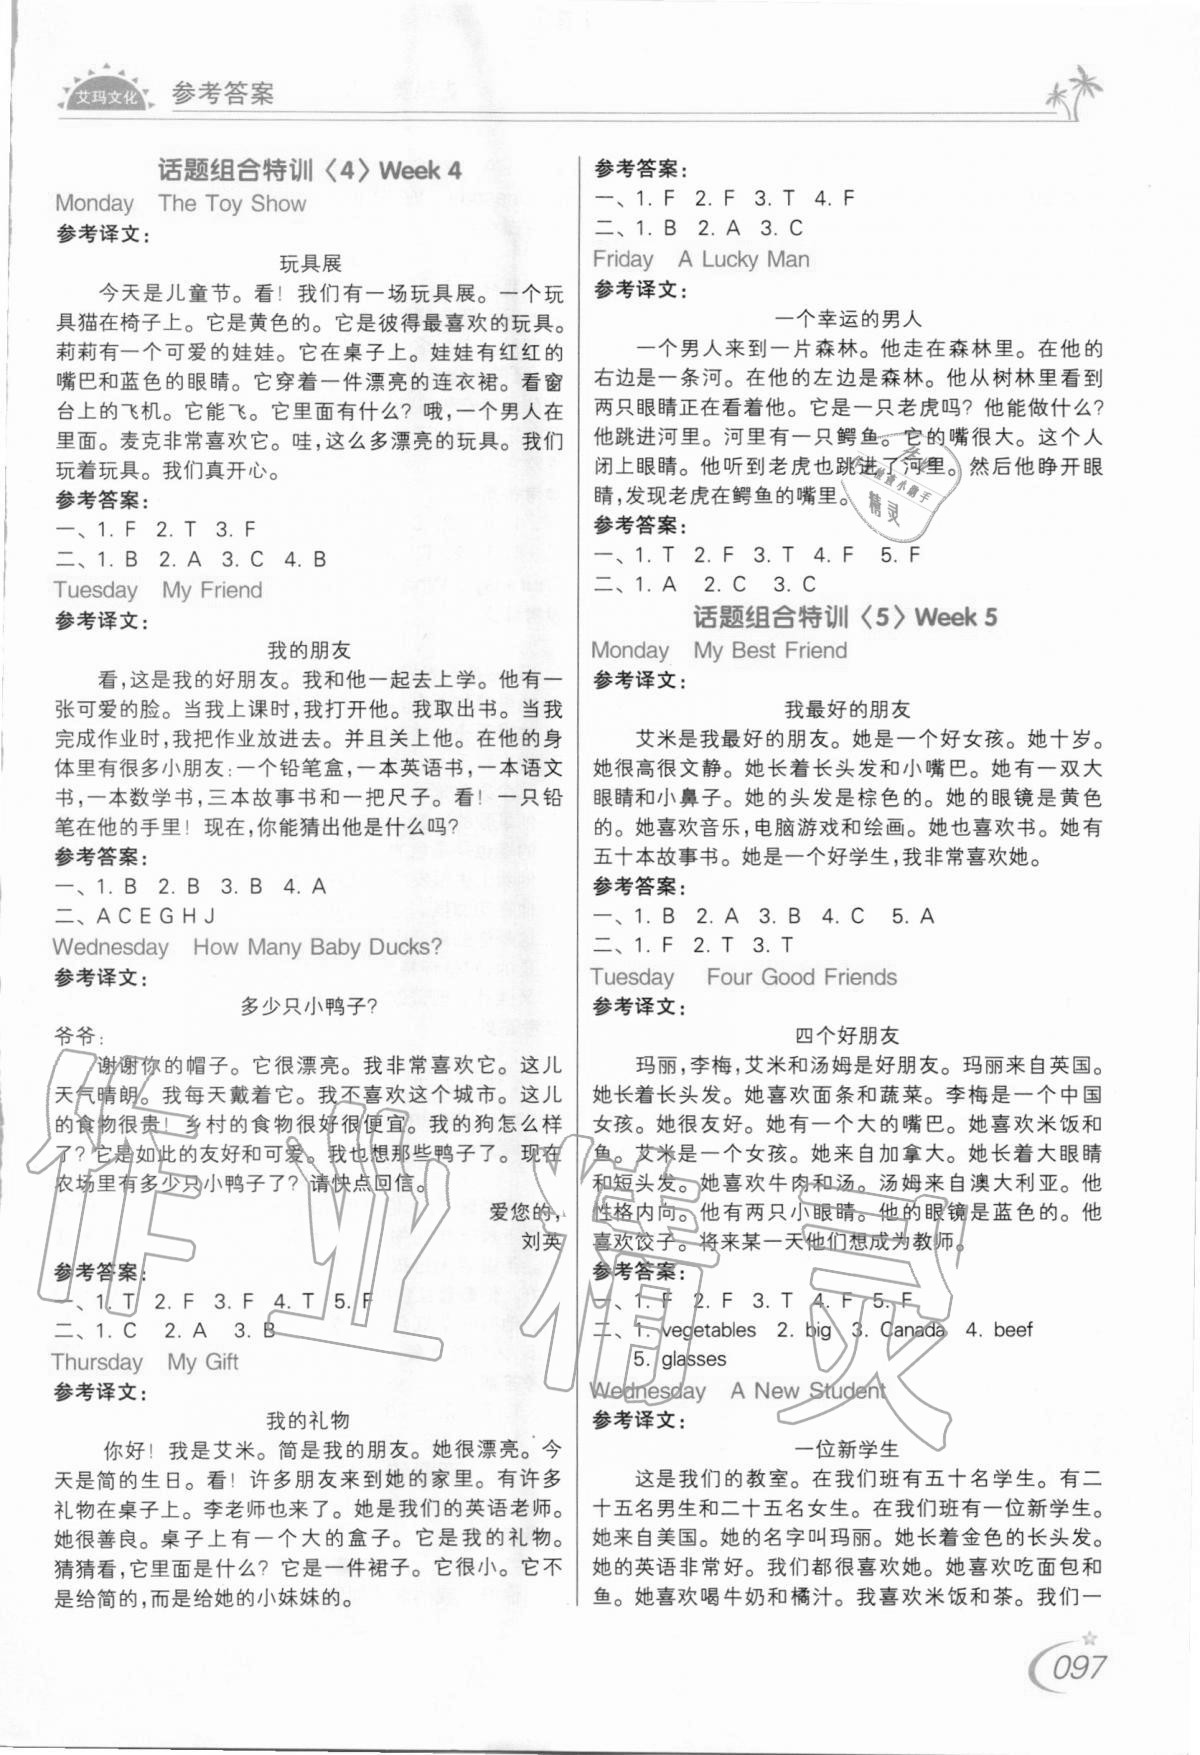 艾玛文化
参考答案
话题组合特训〈4〉Week 4
Monday The Toy Show
参考译文：
玩具展
今天是儿童节。看！我们有一场玩具展。一个玩
具猫在椅子上。它是黄色的。它是彼得最喜欢的玩具。
莉莉有一个可爱的娃娃。它在桌子上。娃娃有红红的
嘴巴和蓝色的眼睛。它穿着一件漂亮的连衣裙。看窗
台上的飞机。它能飞。它里面有什么？哦,一个男人在
里面。麦克非常喜欢它。哇,这么多漂亮的玩具。我们
玩着玩具。我们真开心。
参考答案：
一、1. F 2. T 3. F
二、1. B 2. A 3. C 4. B
Tuesday My Friend
参考译文：
我的朋友
看,这是我的好朋友。我和他一起去上学。他有一
张可爱的脸。当我上课时,我打开他。我取出书。当我
完成作业时,我把作业放进去。并且关上他。在他的身
体里有很多小朋友:一个铅笔盒,一本英语书,一本语文
书,一本数学书,三本故事书和一把尺子。看！一只铅
笔在他的手里！现在,你能猜出他是什么吗？
参考答案：
一、1. B 2. B 3. B 4. A
二、A C E G H J
Wednesday How Many Baby Ducks?
参考译文：
多少只小鸭子？
爷爷：
谢谢你的帽子。它很漂亮。我非常喜欢它。这儿
天气晴朗。我每天戴着它。我不喜欢这个城市。这儿
的食物很贵！乡村的食物很好很便宜。我的狗怎么样
了？它是如此的友好和可爱。我也想那些鸭子了。现在
农场里有多少只小鸭子了？请快点回信。
爱您的,
刘英
参考答案：
一、1. T 2. F 3. F 4. T 5. F
二、1. C 2. A 3. B
Thursday My Gift
参考译文：
我的礼物
你好！我是艾米。简是我的朋友。她很漂亮。今
天是简的生日。看！许多朋友来到她的家里。有许多
礼物在桌子上。李老师也来了。她是我们的英语老师。
她很善良。桌子上有一个大的盒子。它是我的礼物。
猜猜看,它里面是什么？它是一件裙子。它很小。它不
是给简的,而是给她的小妹妹的。
参考答案：
一、1. F 2. F 3. T 4. F
二、1. B 2. A 3. C
Friday A Lucky Man
参考译文：
一个幸运的男人
一个男人来到一片森林。他走在森林里。在他的
右边是一条河。在他的左边是森林。他从树林里看到
两只眼睛正在看着他。它是一只老虎吗？他能做什么？
他跳进河里。河里有一只鳄鱼。它的嘴很大。这个人
闭上眼睛。他听到老虎也跳进了河里。然后他睁开眼
睛,发现老虎在鳄鱼的嘴里。
参考答案：
一、1. T 2. F 3. T 4. F 5. F
二、1. A 2. C 3. C
话题组合特训〈5〉Week 5
Monday My Best Friend
参考译文：
我最好的朋友
艾米是我最好的朋友。她是一个好女孩。她十岁。
她很高很文静。她长着长头发和小嘴巴。她有一双大
眼睛和小鼻子。她的头发是棕色的。她的眼镜是黄色
的。她喜欢音乐,电脑游戏和绘画。她也喜欢书。她有
五十本故事书。她是一个好学生,我非常喜欢她。
参考答案：
一、1. B 2. A 3. B 4. C 5. A
二、1. F 2. T 3. T
Tuesday Four Good Friends
参考译文：
四个好朋友
玛丽,李梅,艾米和汤姆是好朋友。玛丽来自英国。
她长着长头发。她喜欢面条和蔬菜。李梅是一个中国
女孩。她很友好。她有一个大的嘴巴。她喜欢米饭和
鱼。艾米是一个女孩。她来自加拿大。她长着大眼睛
和短头发。她喜欢牛肉和汤。汤姆来自澳大利亚。他
性格内向。他有两只小眼睛。他的眼镜是蓝色的。他
喜欢饺子。将来某一天他们想成为教师。
参考答案：
一、1. F 2. F 3. T 4. F 5. F
二、1. vegetables 2. big 3. Canada 4. beef
5. glasses
Wednesday A New Student
参考译文：
一位新学生
这是我们的教室。在我们班有五十名学生。有二
十五名男生和二十五名女生。在我们班有一位新学生。
她来自美国。她的名字叫玛丽。她长着金色的长头发。
她的英语非常好。我们都很喜欢她。她喜欢吃面包和
鱼。她喜欢喝牛奶和橘汁。我喜欢米饭和茶。我们一
097
作业精灵
精灵